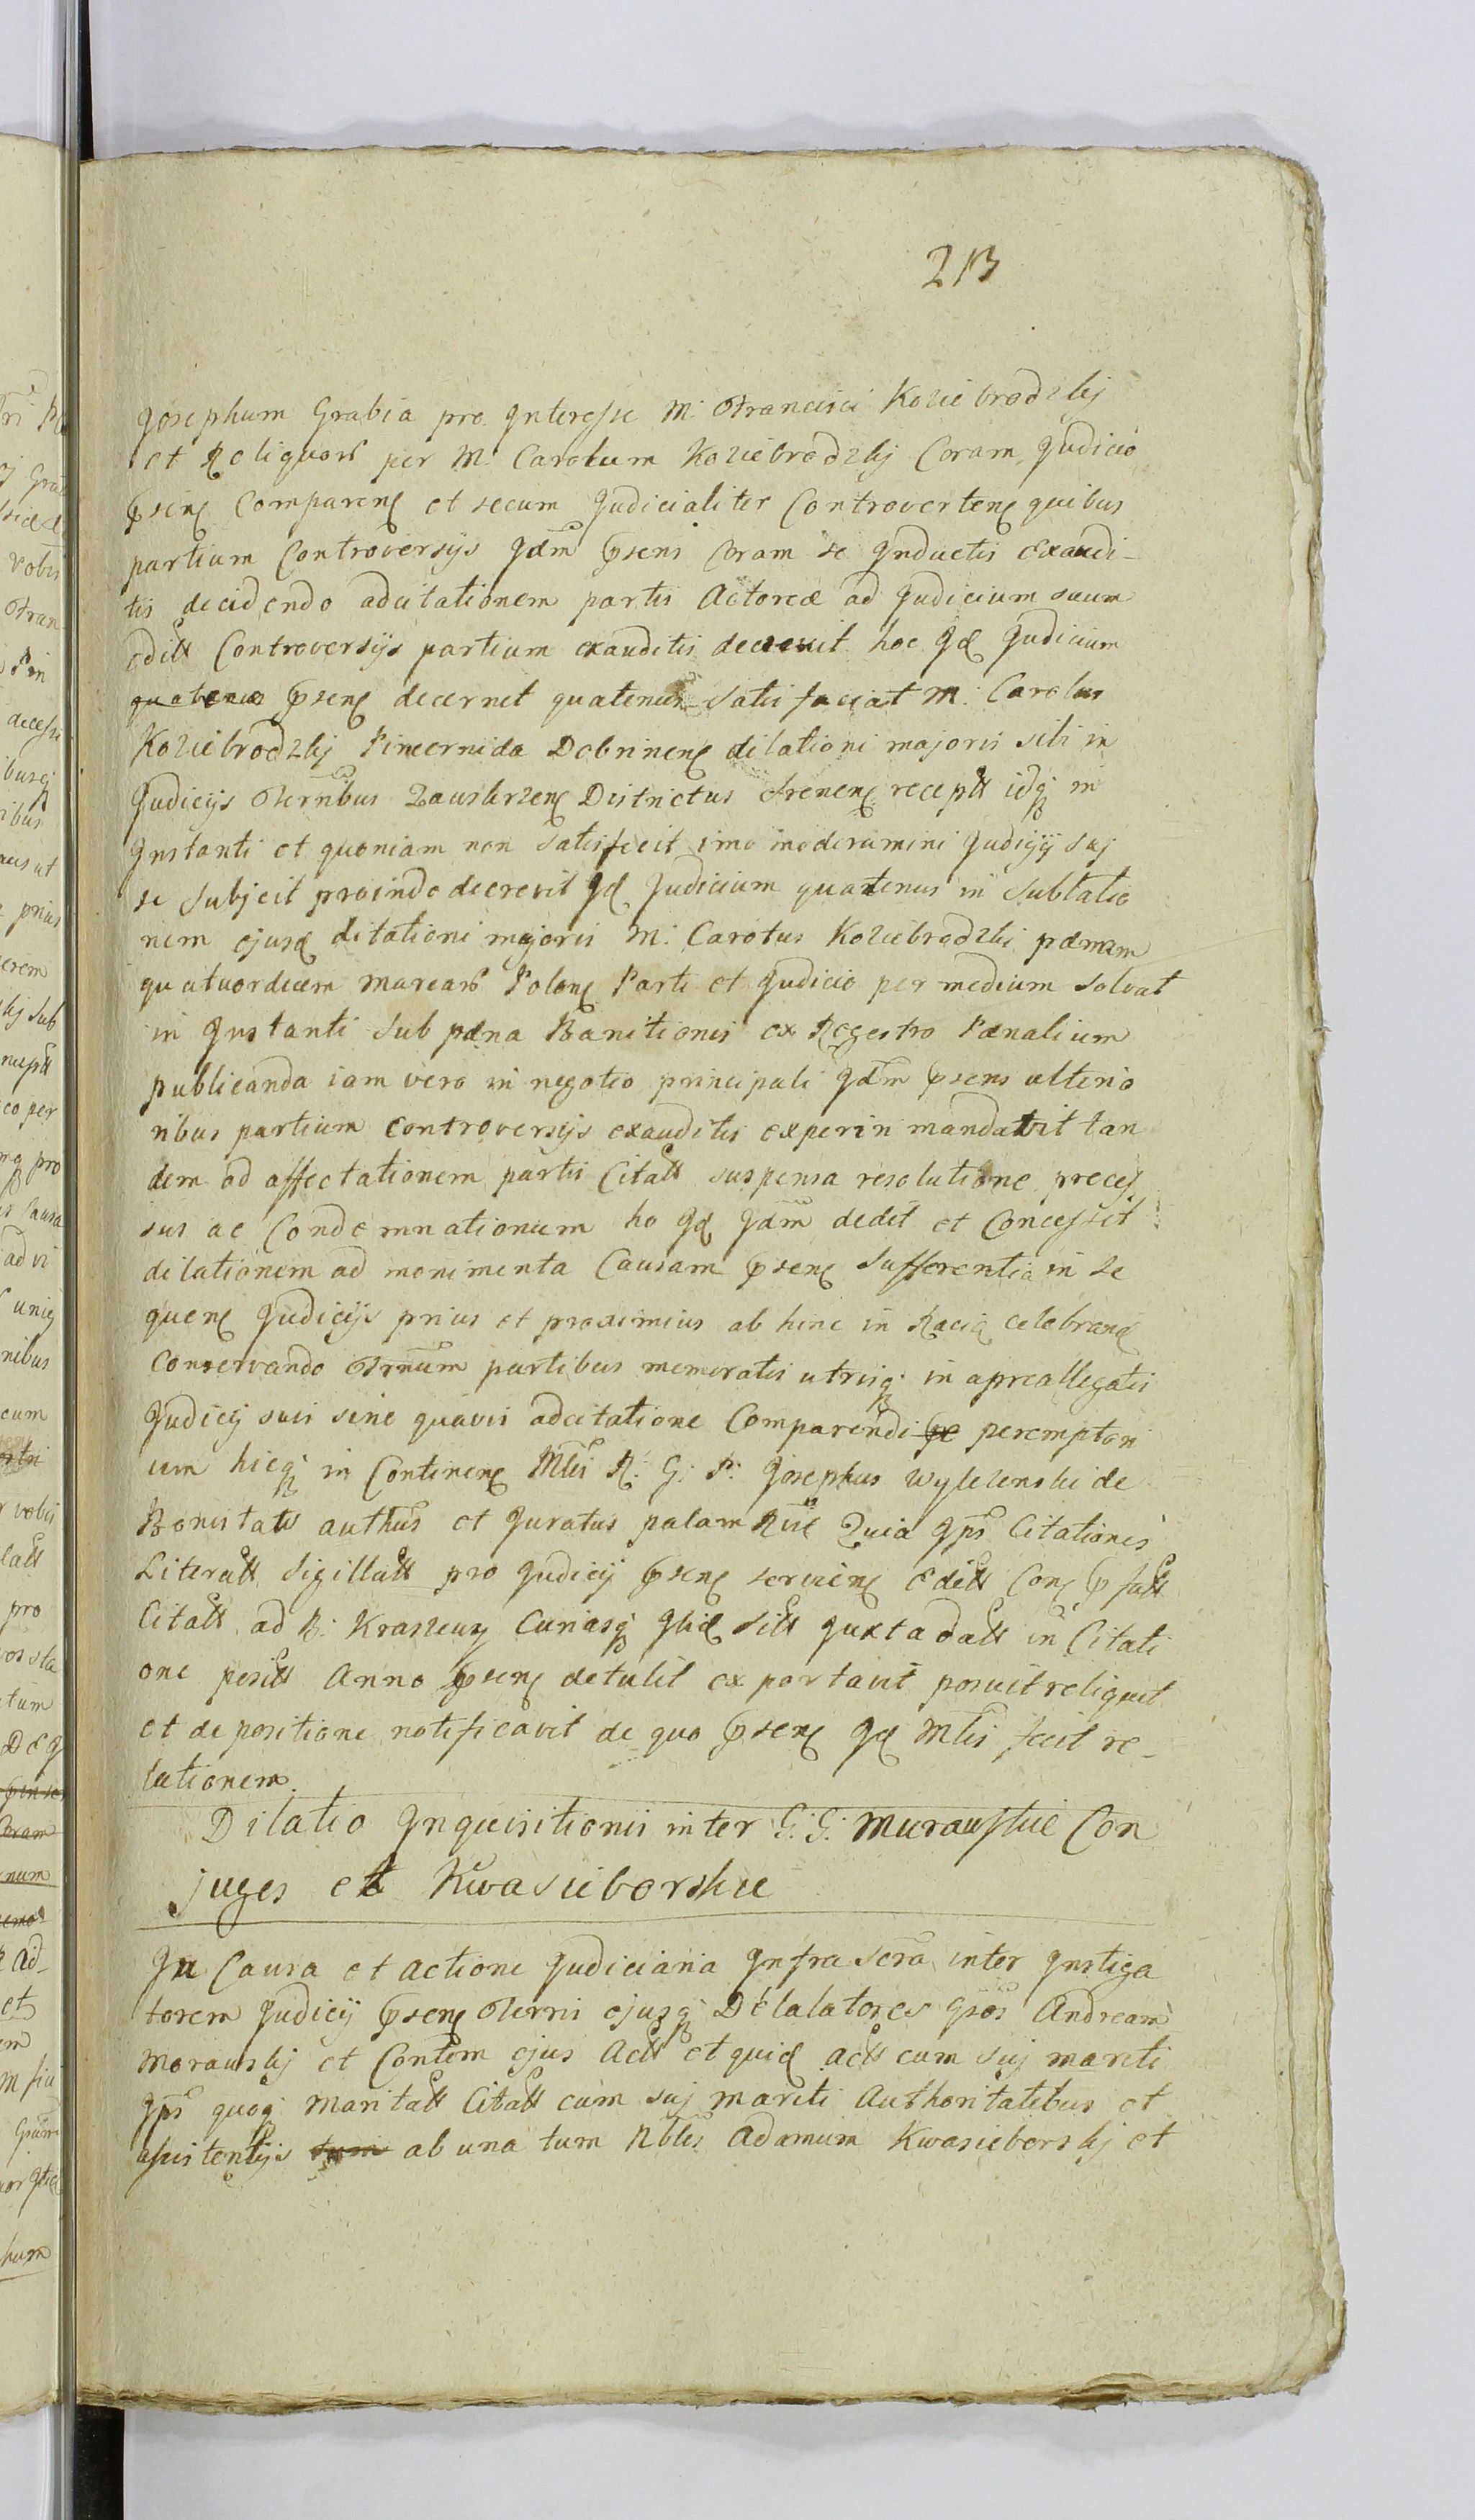 213
Josephum Grabia pro Interesse M: Francisci Koziebrodzkij
et Reliquorum per M: Carolum Koziebrodzkij Coram Judicio
psenꝭ Comparenꝭ et secum Judicialiter Controvertenꝭ quibus
partium Controversijs Jdm psens Coram se Inductis Exaudi-
tis decidendo adcitationem partis Actoreæ ad Judicium suum
edill Controversijs partium exauditis decrevit hoc Jd Judicium
psenꝭ decernit quatenus Satisfaciat M: Carolus
Koziebrodzkij Pincernida Dobrinenꝭ dilationi majoris sibi in
Judicijs Terribus Zauskrzenꝭ Districtus Srenenꝭ receptt idq in
Instanti et quoniam non Satisfecit imo moderamini Judicij suj
se Subjecit proinde decrevit Jd Judicium quatenus in Sublatio
nem ejusd dilationi majoris M: Carolus Koziebrodzki pænam
quatuordecem marcarum Polonꝭ Parti et Judicio per medium Solvat
in Instanti Sub pæna Banitionis ex Regestro Pænalium
publicanda iam vero in negotio principali Jdm psens ulterio
ribus partium Controversijs exauditis experiri mandavit tan
dem ad affectationem partis Citatt suspensa resolutione proces
sus ac Condemnationum ho Jd Jdm dedit et Concessit
dilationem ad monimenta Causam psenꝭ Sufferentia in Se
quenꝭ Judicijs prius et proximius ab hinc in Raciąz celebrandꝭ
Conservando Trnum partibus memoratis utrisq in apreallegatis
Judicij suis sine quavis adcitatione Comparendi peremptori
um hicq in Continenꝭ Mlis R: G: P: Josephus Wylezenski de
Bonis tali authus et Juratus palam Quia Jps Citationis
Literatt Sigillatt pro Judicij psenꝭ servienꝭ Editt Conꝭ
Citatt ad B: Kraszewy Curiasq Ibid Sitt Juxta datt in Citati
one positt Anno psenꝭ detulit exportavit posuit reliquit
et de positione notificavit de quo psenꝭ Jd Mlis fecit re-
lationem.
Dilatio Inquisitionis inter G: G: Murauskie Con
juges et Kwasieborskie
In Causa et actione Judiciaria Infra Scra inter Instiga
torem Judicij psenꝭ Terris ejusq Delatores Gsos Andream
Morauskij et Contem ejus Actt et quid actt cum suj mariti
Jps quoq Maritatt Citatt cum suj mariti Authoritatibus et
assistentijs tum ab una tum Nbles Adamum Kwasieborskij et